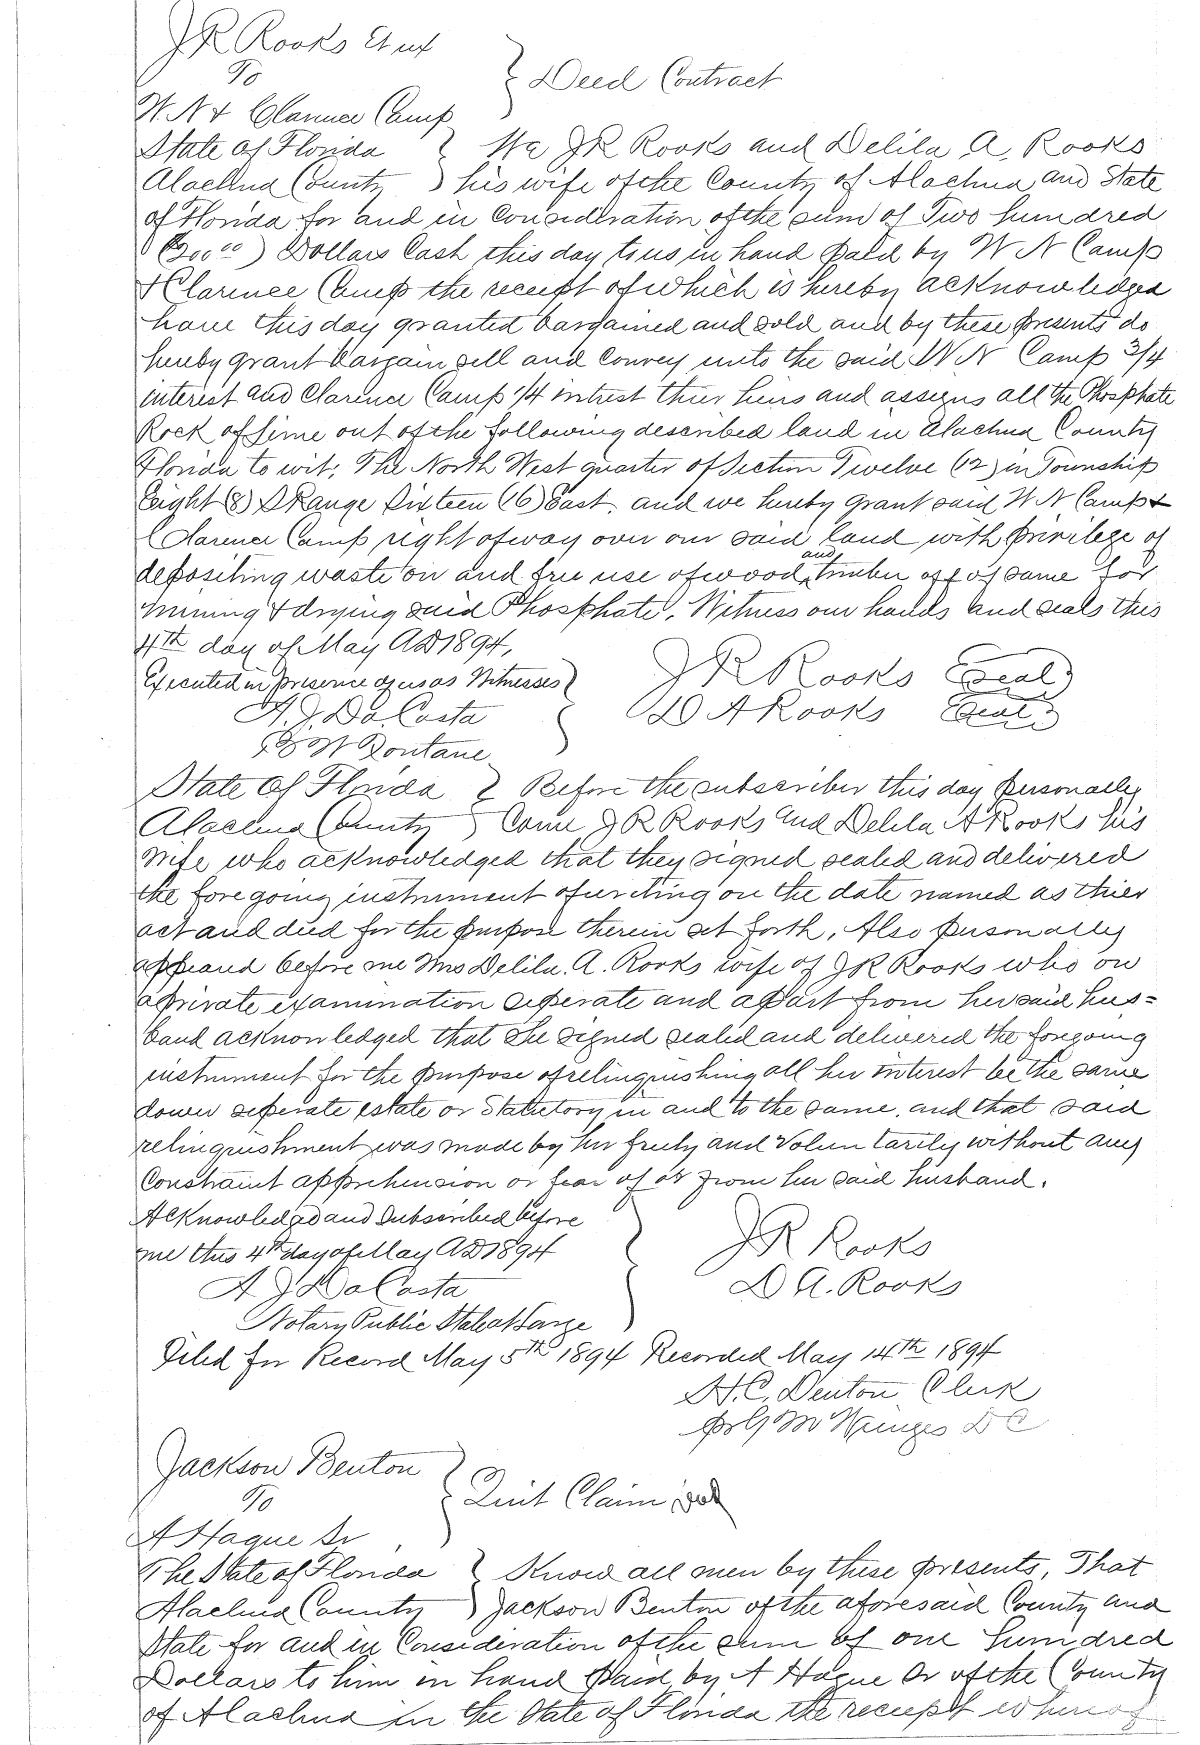 JR Rooks Et ux
To
Deed Contract
W. N & Clarence Camp
State of Florida We JR Rooks and Delila A. Rooks
Alachua County his wife of the County of Alachua and State
of Florida for and in Consideration of the sum of Two hundred
(200 00) Dollars Cash this day to us in hand paid by W N Camp
& Clarence Camp the receipt of which is hereby acknowledged
have this day granted bargained and sold and by these presents do
hereby grant bargain sell and convey unto the said W N Camp 3/4
interest and Clarence Camp 1/4 intrest thier heirs and assigns all the Phosphate
Rock of lime out of the following described land in Alachua County
Florida to wit; The North West quarter of Section Twelve (12) in Township
Eight (8) S Range Sixteen (16) East. and we hereby grant said W N Camp &
Clarence Camp right of way over our said land with privilege of
depositing waste on and free use of wood and timber off of same for
mining & drying said Phosphate. Witness our hands and seals this
4th day of May AD 1894,
Executed in presence of us as Witnesses JR Rooks Seal
A. J. DaCosta D A Rooks Seal
State of Florida Before the subscriber this day personally
Alachua County Come J R Rooks and Delila A Rooks his
wife who acknowledged that they signed sealed and delivered
the foregoing instrument of writing on the date named as thier
act and deed for the purpose therein set forth. Also personally
appeared before me Mrs Delila. A. Rooks wife of JR Rooks who on
a private examination seperate and apart from her said hus=
band acknowledged that she signed sealed and delivered the foregoing
instrument for the purpose of relinquishing all her interest be the same
dower seperate estate or Statutory in and to the same. and that said
relinquishment was made by her freely and Voluntarily without any
Constraint apprehension or fear of or from her said husband.
Acknowledged and Subscribed before
me this 4th day of May AD 1894 JR Rooks
A J DaCosta D A. Rooks
Notary Public State at Large
Filed for Record May 5th 1894 Recorded May 14th 1894
H. C. Denton Clerk
DC
Jackson Benton
To
Quit Claim
A Hague Sr
The State of Florida Know all men by these presents, That
Alachua County Jackson Benton of the aforesaid County and
State for and in Consideration of the sum of one hundred
Dollars to him in hand paid by A Hague Sr of the County
of Alachua in the State of Florida the receipt whereof